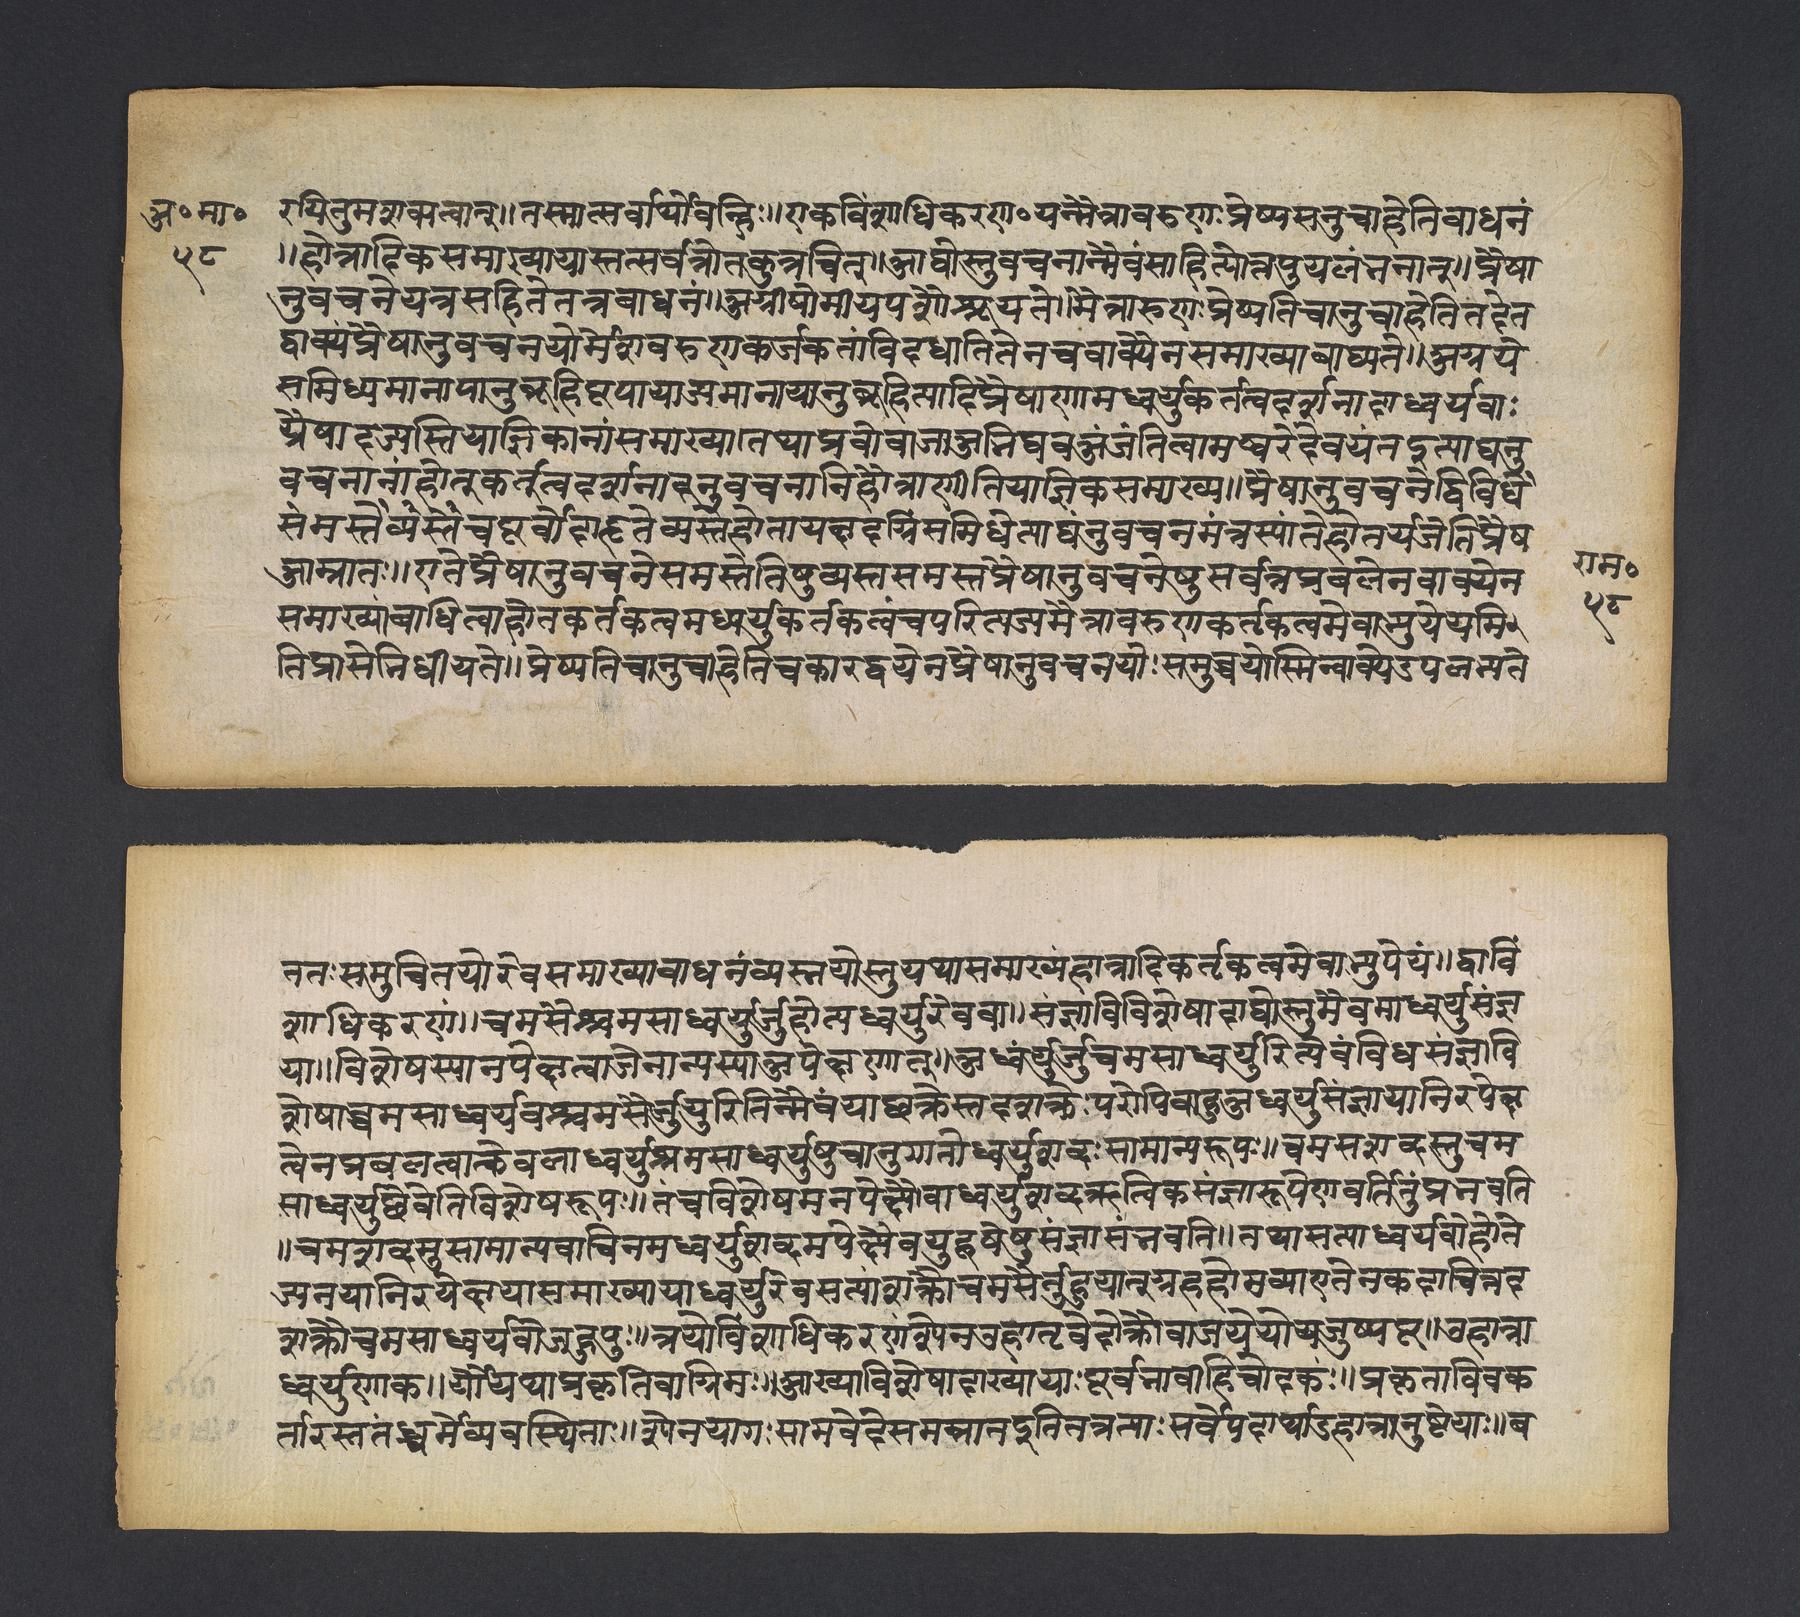 अ॰मा॰
५८
रयितुमशक्यत्वात्॥तस्मात्सर्वार्थोवन्हिः॥एकविंशाधिकरण॰यन्मैत्रावरुणःप्रेष्यसनुचाहेतिबाधनं
॥होत्रादिकसमाख्यायास्तत्सर्वत्रोतकुत्रचित्॥आद्योस्तुवचनान्मैवंसाहित्योत्नपुयलंननात्॥प्रैषा
नुवचनेयत्रसहितेतत्रबाधनं॥अग्नीषोमीयपशौश्रूयते॥मैत्रारुणःप्रेष्यतिचानुचाहेतितदेत
द्वाक्यंप्रैषानुवचनयोर्मैत्रावरुणकर्तृकतांविदधातितेनचवाक्येनसमाख्याबाध्यते॥अग्नये
समिध्यमानायानुब्रूहिष्टपायाज्यमानायानुब्रूहित्यादिप्रैषाणामध्वर्युकर्तृत्वदर्शनादाध्वर्यवाः
प्रैषाइत्यस्तियाज्ञिकानांसमाख्या।तथाप्रवोवाजाअभिद्यवअंजंतित्वामध्वरेदेवयंतइत्याद्यनु
वचनानांहोतृकर्तृत्वदर्शनादनुवचनानिहौत्राणीतियाज्ञिकसमाख्य॥प्रैषानुवचनेद्विविधे
समस्तेव्यस्तेचष्टर्वोदाहृतेव्यस्तेहोतायक्षदग्निंसमिधेत्याद्यनुवचनमंत्रस्यांतेहोतर्यजेतिप्रैष
आम्नातः॥एतेप्रैषानुवचनेसमस्तेतिषुव्यस्तसमस्तप्रैषानुवचनेषुसर्वत्रप्रबलेनवाक्येन
समाख्यांबाधित्वाहोतृकर्तृकत्वमध्वर्युकर्तृकत्वंचपरित्यज्यमैत्रावरुणकर्तृकत्वमेवाभ्युपेयमि
तिप्राप्तेभिधीयते॥प्रेष्यतिचानुचाहेतिचकारद्वयेनप्रैषानुवचनयोःसमुच्चयोस्मिन्वाक्येउपलभ्यते
राम॰
५८
ततःसमुचितयोरेवसमाख्याबाधनंव्यस्तयोस्तुयथासमाख्यंहोत्रादिकर्तृकत्वमेवाभ्युपेयं॥द्वाविं
शाधिकरणं॥चमसैश्चमसाध्वर्युर्जुहोत्यध्वर्युरेववा॥संज्ञाविविशेषादाद्योस्तुमैवमाध्वर्युसंज्ञ
या॥विशेषस्यानपेक्षत्वाजेनान्यस्याअपेक्षणात्॥अध्वंर्युर्जुचमसाध्वर्युरित्येवंविधसंज्ञावि
शेषाच्चमसाध्वर्यवश्चमसैर्जुयुरितिन्मैवंयाछक्तेस्तदशक्तेःपरोपिवाहुअध्वर्युसंज्ञायानिरपेक्ष
त्वेनप्रबलत्वात्केवलाध्वर्युश्चमसाध्वर्युषुचानुगतोध्वर्युशब्दःसामान्यरूपः॥चमसशब्दस्तुचम
साध्वर्युष्वेवेतिविशेषरूपः॥तंचविशेषमनपेक्ष्यैवाध्वर्युशब्दऋत्विकसंज्ञारूपेणवर्तितुंप्रभवति
॥चमशब्दस्तुसामान्यवाचिनमध्वर्युशब्दमपेक्ष्यैवयुरुषेषुसंज्ञासंभवति॥तथासत्याध्वर्यवोहोते
ज्यनयानिरपेक्षयासमाख्ययाध्वर्युरेवसत्यांशक्तौचमसैर्जुहुयात्ग्रहहोमव्याएतेनकदाचिन्नद
शक्तौचमसाध्वर्यवोजुहुयुः॥त्रयोविंशाधिकरणंश्येनउहातृवेदोक्तोवाजपेयोयजुष्यष्ट॥उहात्रा
ध्वर्युणाक॥र्योयथाप्रकृतिवाग्रिमः॥आख्याविशेषादाख्यायाःष्टर्वभावीहिचोदकः॥प्रकृताविवक
र्तारस्ततंध्धर्मेव्यवस्थिताः॥श्येनयागःसामवेदेसमम्नातइतितत्रत्याःसर्वेपदार्थाउहात्रानुष्टेयाः॥व